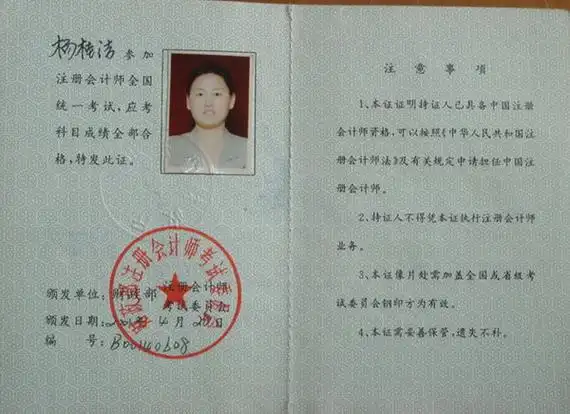 杨桂洁 参加
注册会计师全国
统一考试,应考
科目成绩全部合
格,特发此证。
注册会计师考试
颁发单位:财政部 注册会计师
考试委员会
颁发日期: 4月20日
编 号:
注意事项
1、本证证明持证人已具备中国注册
会计师资格,可以按照《中华人民共和国
注册会计师法》及有关规定申请担任中国
注册会计师。
2、持证人不得凭本证执行注册会计师
业务。
3、本证像片处需加盖全国或省级考
试委员会钢印方为有效。
4、本证需妥善保管,遗失不补。